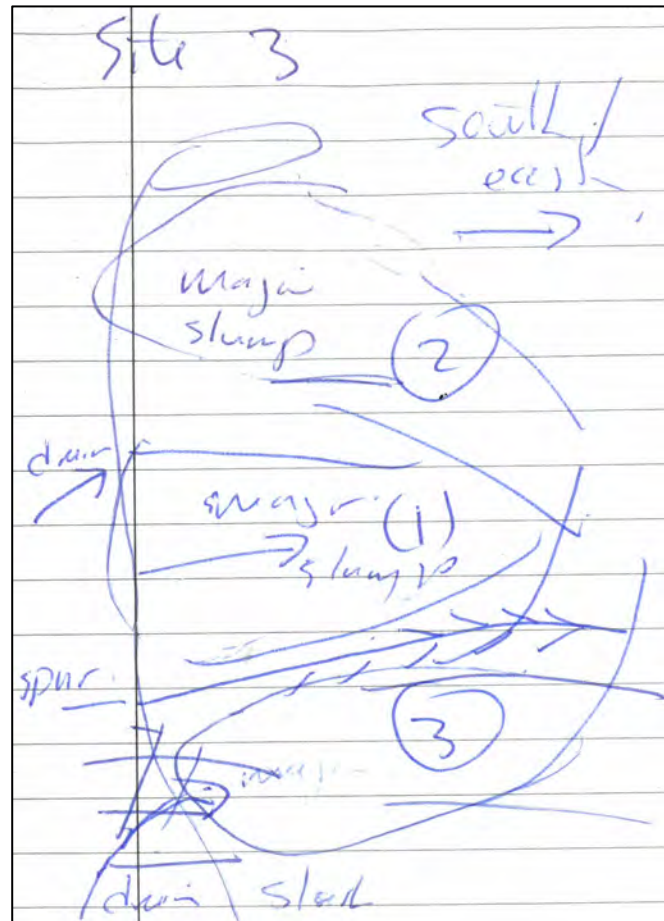 Site 3
South/
east
major
slump
2
drain
major (1)
slump
spur
3
major
drain